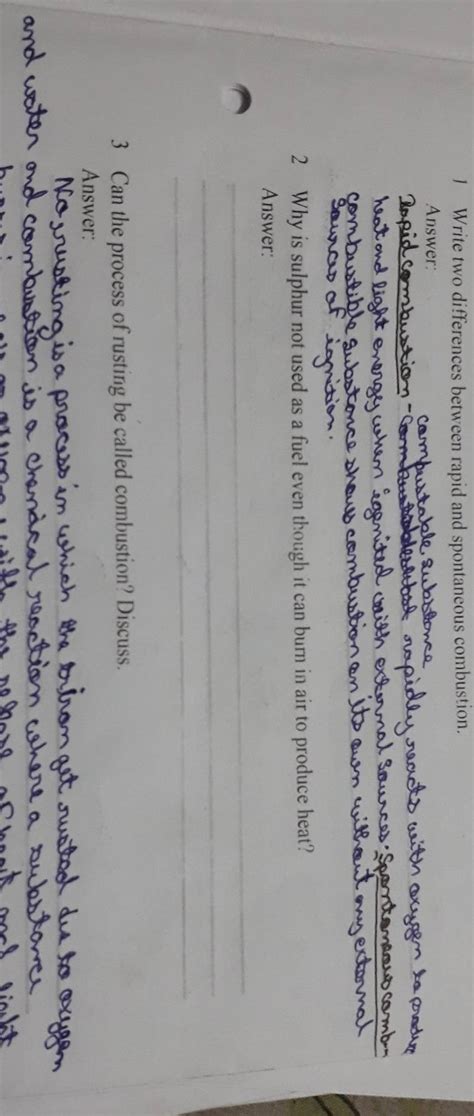 1 Write two differences between rapid and spontaneous combustion.
Answer:
combustable substance
Rapid combustion - rapidly reacts with oxygen to produce
heat and light energy when ignited with external sources. Spontaneous comb-
combustible substance shows combustion on its own without any external
sources of ignition.
2 Why is sulphur not used as a fuel even though it can burn in air to produce heat?
Answer:
3 Can the process of rusting be called combustion? Discuss.
Answer:
No, rusting is a process in which the iron get rusted due to oxygen
and water and combustion is a chemical reaction where a substance
with the release of heat and light